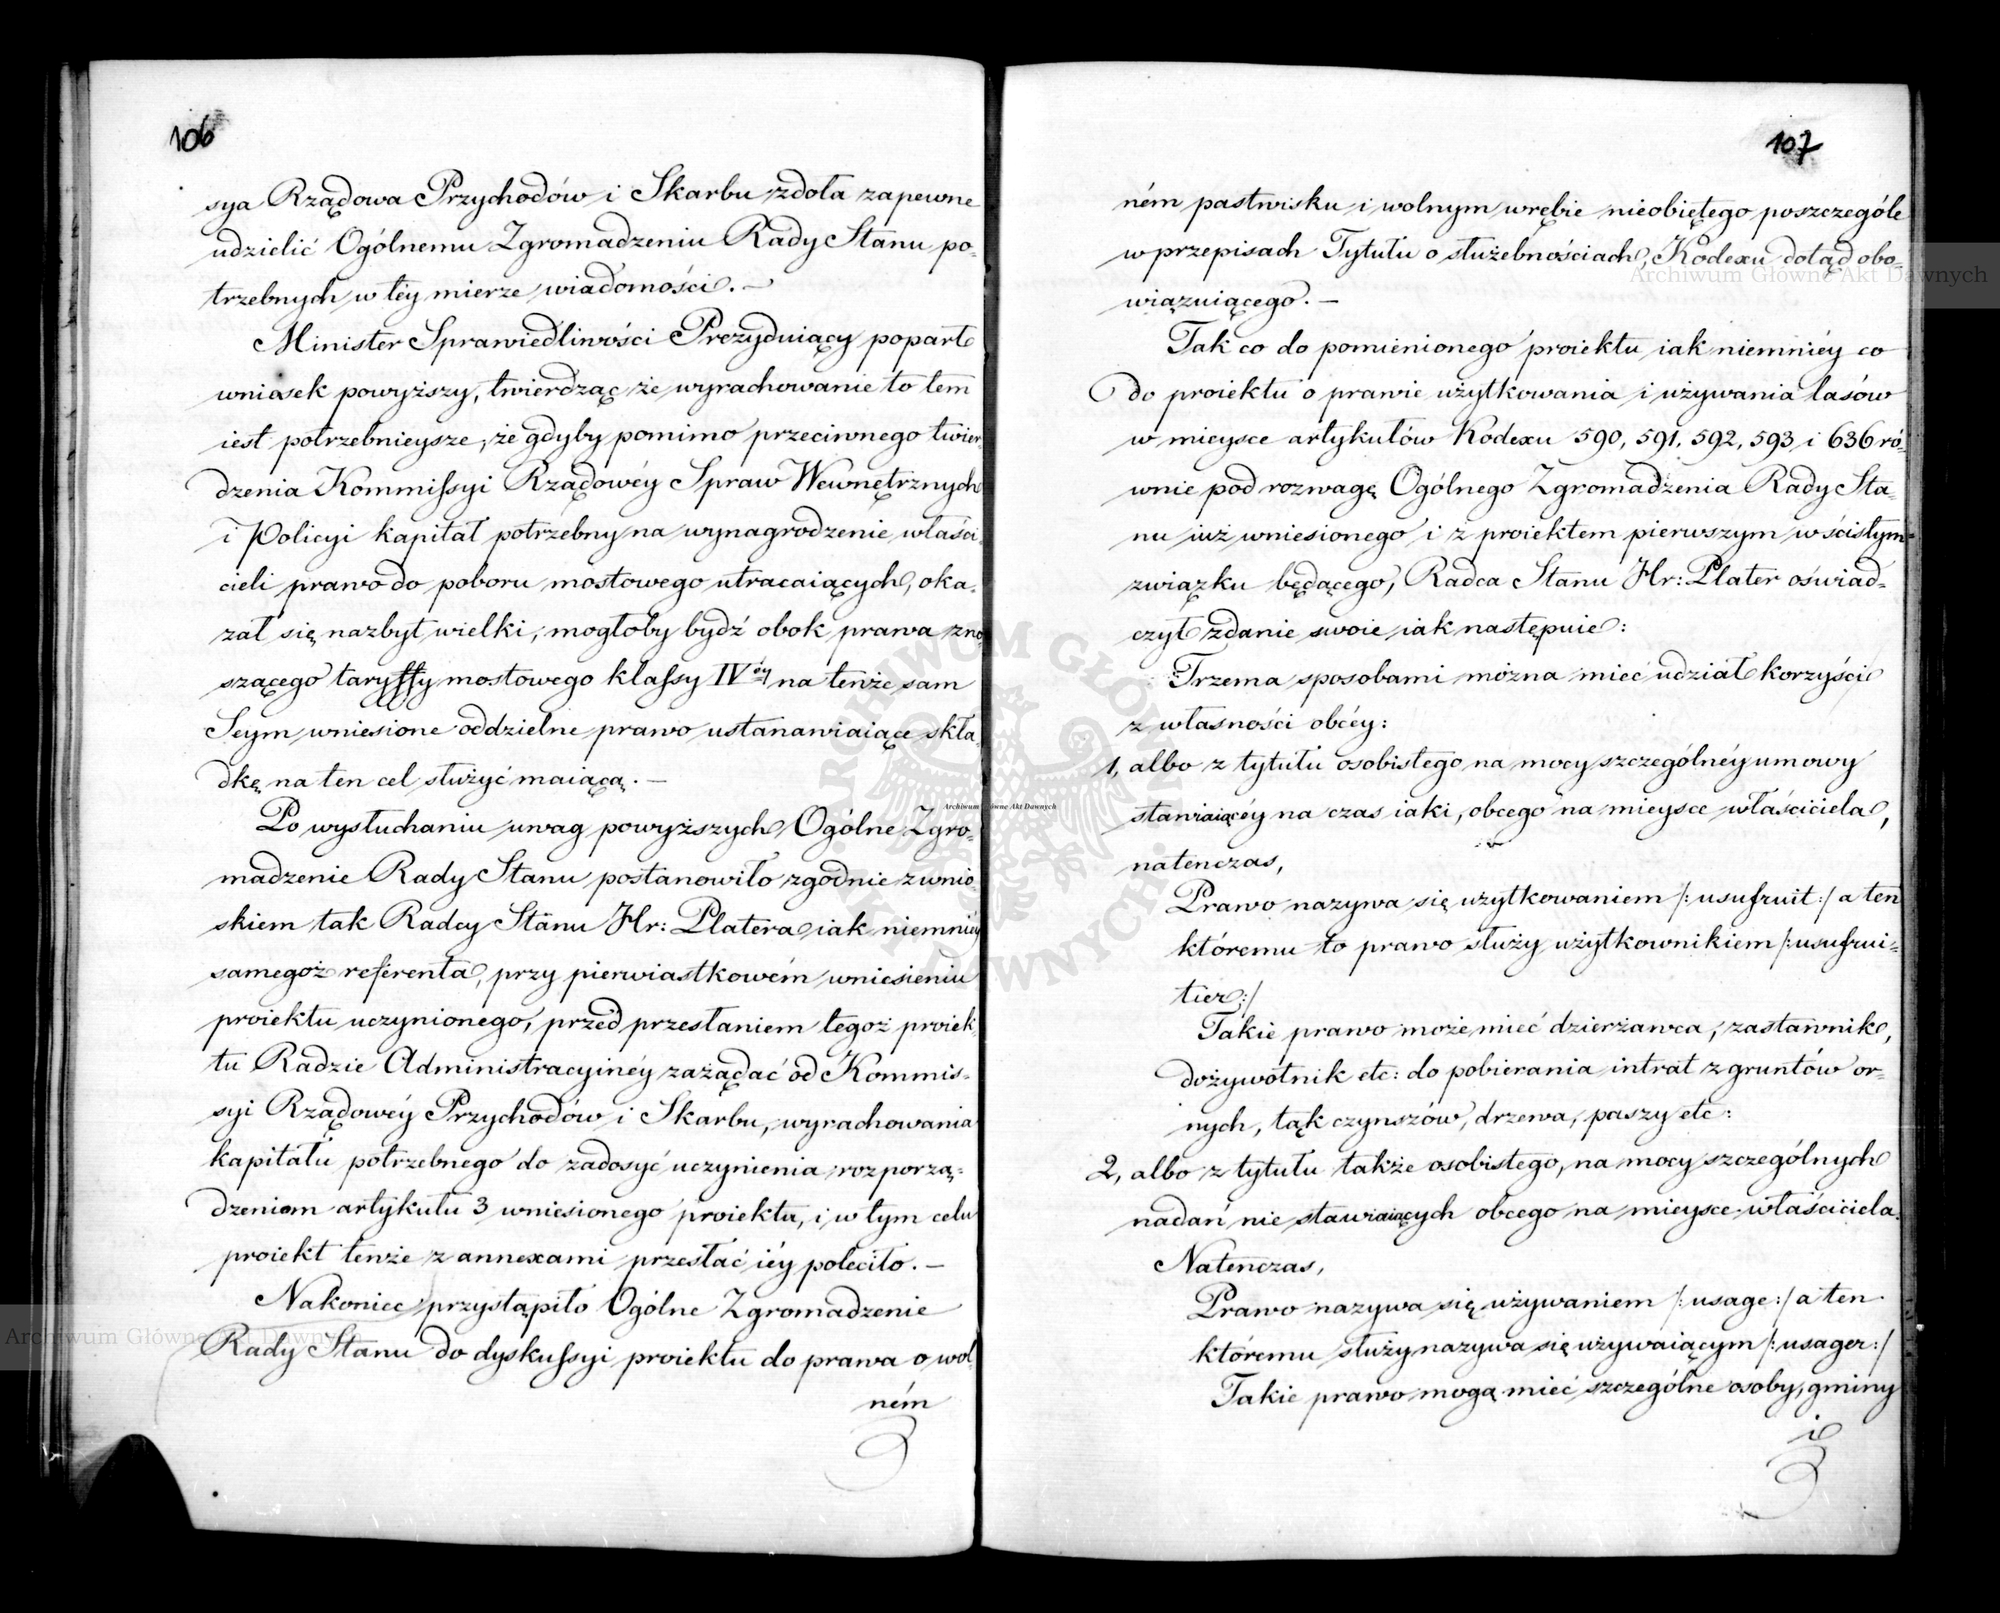 106
sya Rządowa Przychodów i Skarbu zdoła zapewne
udzielić Ogólnemu Zgromadzeniu Rady Stanu po-
trzebnych w téy mierze wiadomości. —
Minister Sprawiedliwości Prezyduiący poparł
wniosek powyższy, twierdząc że wyrachowanie to tem
iest potrzebnieysze, że gdyby pomimo przeciwnego twier-
dzenia Kommissyi Rządowéy Spraw Wewnętrznych
i Policyi kapitał potrzebny na wynagrodzenie właści-
cieli prawo do poboru mostowego utracaiących, oka-
zał się nazbyt wielki, mogłoby bydź obok prawa zno-
szącego taryffy mostowego klassy IVéy na tenże sam
Seym wniesione oddzielne prawo ustanawiaiące skła-
dkę na ten cel służyć maiącą. —
Po wysłuchaniu uwag powyższych Ogólne Zgro-
madzenie Rady Stanu postanowiło zgodnie z wnio-
skiem tak Radcy Stanu Hr: Platera iak niemniéy
samegoż referenta, przy pierwiastkowém wniesieniu
proiektu uczynionego, przed przesłaniem tegoż proiek-
tu Radzie Administracyinéy zażądać od Kommis-
syi Rządowéy Przychodów i Skarbu, wyrachowania
kapitału potrzebnego do zadosyć uczynienia rozporzą-
dzeniom artykułu 3 wniesionego proiektu, i w tym celu
proiekt tenże z annexami przesłać iéy poleciło. —
Nakoniec przystąpiło Ogólne Zgromadzenie
Rady Stanu do dyskussyi proiektu do prawa o wol
ném
107
ném pastwisku i wolnym wrębie nieobiętego poszczególe
w przepisach Tytułu o służebnościach, Kodexu dotąd obo-
wiązuiącego. —
Tak co do pomienionego proiektu iak niemniéy co
do proiektu o prawie użytkowania i używania lasów
w mieysce artykułów Kodexu 590, 591, 592, 593 i 636 ró-
wnie pod rozwagę Ogólnego Zgromadzenia Rady Sta-
nu iuż wniesionego i z proiektem pierwszym w ścisłym
związku będącego, Radca Stanu Hr: Plater oświad-
czył zdanie swoie iak następuie:
Trzema sposobami można mieć udział korzyści
z własności obcéy:
1, albo z tytułu osobistego na mocy szczególnéy umowy
stawiaiącéy na czas iaki, obcego na mieysce właściciela,
natenczas,
Prawo nazywa się użytkowaniem /: usufruit :/ a ten
któremu to prawo służy użytkownikiem /: usufrui-
tier :/
Takie prawo może mieć dzierżawca, zastawnik,
dożywotnik etc: do pobierania intrat z gruntów or-
nych, łąk czynszów, drzewa, paszy etc:
2, albo z tytułu także osobistego, na mocy szczególnych
nadań nie stawiaiących obcego na mieysce właściciela.
Natenczas,
Prawo nazywa się używaniem /: usage :/ a ten
któremu służy nazywa się używaiącym /: usager :/
Takie prawo mogą mieć szczególne osoby, gminy
i
Archiwum Główne Akt Dawnych
Archiwum Główne Akt Dawnych
Archiwum Główne Akt Dawnych
ARCHIWUM GŁÓWNE AKT DAWNYCH